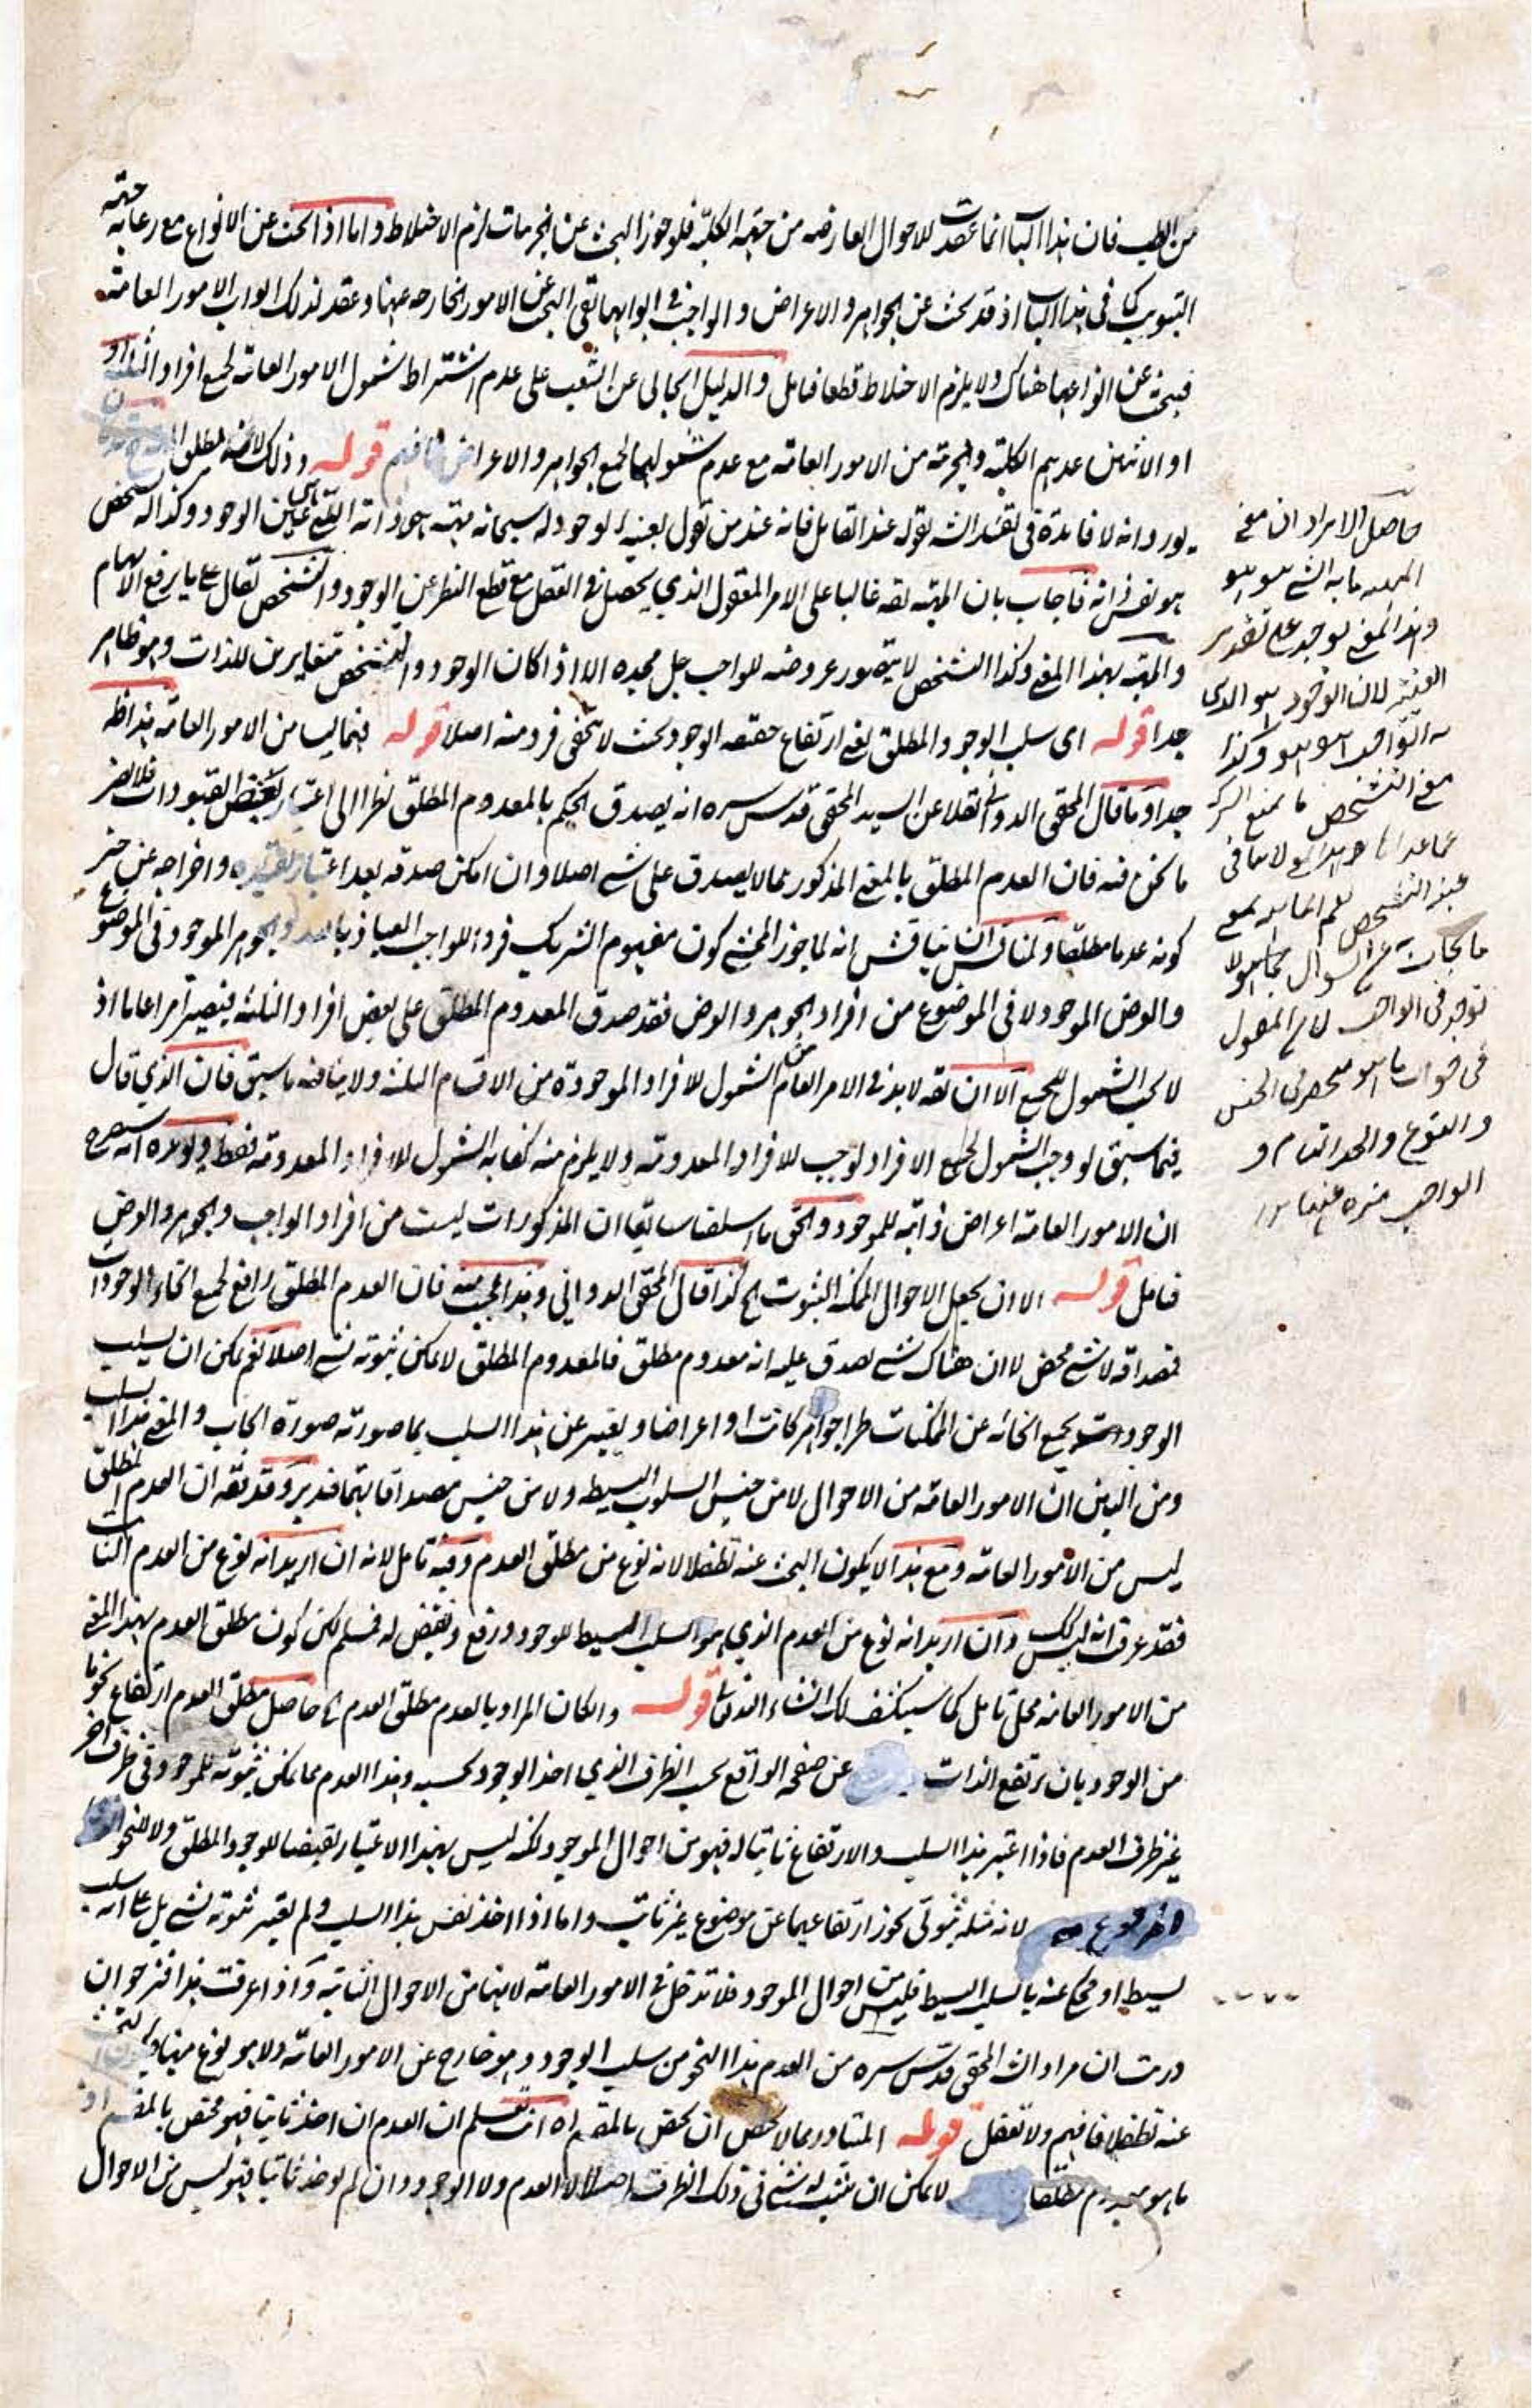 من الطب فان هذا الباب انما عقدت للاحوال العارضه من حيثية الكلية فلو جوز البحث عن الجزئيات لزم الاختلاط واما اذا بحث عن الانواع مع رعاية حيثية
التبويب كما فى هذا الباب اذ قد بحث عن الجواهر والاعراض والواجب فى ابوابها بقى البحث عن الامور الخارجه عنها وعقد لذلك ابواب الامور العامة
فيبحث عن انواعها هناك ولا يلزم الاختلاط قطعا فتامل والدليل الخالى عن الشغب على عدم اشتراط شمول الامور العامة لجميع افراد الثلثة او
او الاثنين عدهم الكلية والجزئية من الامور العامة مع عدم شمولهما لجميع الجواهر والاعراض فافهم قوله وذلك لانه مطلق
يورد انه لا فائدة فى تقييد الش بقوله عند القائل فانه عند من يقول بعينية الوجود له سبحانه مهية هى ذاته التى هى عين الوجود وكذا له تشخص
هو نفس ذاته فاجاب بان المهية تقه غالبا على الامر المعقول الذي يحصل فى العقل مع قطع النظر عن الوجود والتشخص تقال على ما يرفع الابهام
والمهية بهذا المعنى وكذا التشخص لا يتصور عروضه للواجب جل مجده الا اذا كان الوجود والتشخص متغايرين للذات وهو ظاهر
جدا قوله اى سلب الوجود المطلق يعنى ارتفاع حقيقه الوجود بحيث لا يبقى فرد منه اصلا قوله فيما ليس من الامور العامة هذا ظ
جدا وما قال المحقق الدوانى نقلا عن السيد المحقق قدس سره انه يصدق الحكم بالمعدوم المطلق نظرا الى اعتبار بعض القيودات فلا يضر
ما نحن فيه فان العدم المطلق بالمعنى المذكور مما لا يصدق على شئ اصلا وان امكن صدقه بعد اعتبار تقييده واخراجه عن حيز
كونه عدما مطلقا ولمناقش ان يناقش انه لما جوز المحشى كون مفهوم الشريك فردا للواجب العياذ بالله والجوهر الموجود فى الموضوع
والعرض الموجود لا فى الموضوع من افراد الجوهر والعرض فقد صدق المعدوم المطلق على بعض افراد الثلثة فيصير امرا عاما اذ
لا يجب الشمول للجميع الا ان يقه لا بد فى الامر العام من الشمول للافراد الموجودة من الاقسام الثلثة ولا ينافيه ما سبق فان الذي قال
فيما سبق لو وجب الشمول لجميع الافراد لوجب للافراد المعدومة ولا يلزم منه كفاية الشمول للافراد المعدومة فقط ويؤيده انه سيصرح
ان الامور العامة اعراض ذاتية للموجود والحق ما اسلفنا سابقا ان المذكورات ليست من افراد الواجب والجوهر والعرض
فتامل قوله الا ان يجعل الاحوال الممكنة الثبوت الخ كذا قال المحقق الدوانى وهذا عجيب منه فان العدم المطلق رافع لجميع انحاء الوجودات
فمصداقه لا شئ محض لا ان هناك شئ يصدق عليه انه معدوم مطلق فالمعدوم المطلق لا يمكن ثبوته لشئ اصلا نعم يمكن ان يسلب
الوجود بجميع انحائه عن الممكنات طرا جواهر كانت او اعراضا ويعبر عن هذا السلب بما صورته صورة ايجاب والمعنى هذا السلب
ومن البين ان الامور العامة من الاحوال لا من جنس السلوب البسيطه ولا من جنس مصداقاتها فتدبر وقد يقه ان العدم المطلق
ليس من الامور العامة ومع هذا لا يكون البحث عنه تطفلا لانه نوع من مطلق العدم وفيه تامل لانه ان اريد انه نوع من العدم الثابت
فقد عرف انه ليس كك وان اريد انه نوع من العدم الذي هو السلب البسيط للوجود ورفع ونقيض له فمسلم لكن كون مطلق العدم بهذا المعنى
من الامور العامة محل تامل كما سينكشف لك انشاء الله تعالى قوله والكان المراد بالعدم مطلق العدم الخ حاصل مطلق العدم ارتفاع نحو ما
من الوجود بان يرتفع الذات عن صفحه الواقع بحسب الظرف الذي اخذ الوجود بحسبه وهذا العدم مما يمكن ثبوته للموجود فى ظرف اخر
غير ظرف العدم فاذا اعتبر هذا السلب والارتفاع ثابتا له فهو من احوال الموجود لكنه ليس بهذا الاعتبار نقيضا للوجود المطلق ولا للنحو
لانه مثله ثبوتى يجوز ارتفاعهما عن موضوع غير ثابت واما اذا اخذ نفس هذا السلب ولم يعتبر ثبوته لشئ بل على انه سلب
بسيط او محكى عنه بالسلب البسيط فليس من احوال الموجود فلا تدخل فى الامور العامة لانها من الاحوال الثابتة واذا عرفت هذا فنرجو ان
دريت ان مراد الش المحقق قدس سره من العدم هذا النحو من سلب الوجود وهو خارج عن الامور العامة ولا هو نوع منها
عنه تطفلا فافهم ولا تغفل قوله المتبادر مما لا يختص ان يختص بالمقسم اه انت تعلم ان العدم ان اخذ ثابتا فهو مختص بالمقسم اذ
ما هو معدوم مطلقا لا يمكن ان يثبت له شئ فى ذلك الظرف اصلا لا العدم ولا الوجود وان لم يوخذ ثابتا فهو ليس من الاحوال
حاصل الايراد ان معنى
المهية ما به الشئ هو هو
وهذا المعنى يوجد على تقدير
العينية لان الوجود هو الذى
به الواجب هو هو وكذا
معنى التشخص ما يمنع
توجد فى الواجب لان المقول
فى جواب ما هو منحصر فى الجنس
والنوع والحد التام و
الواجب منزه عنها